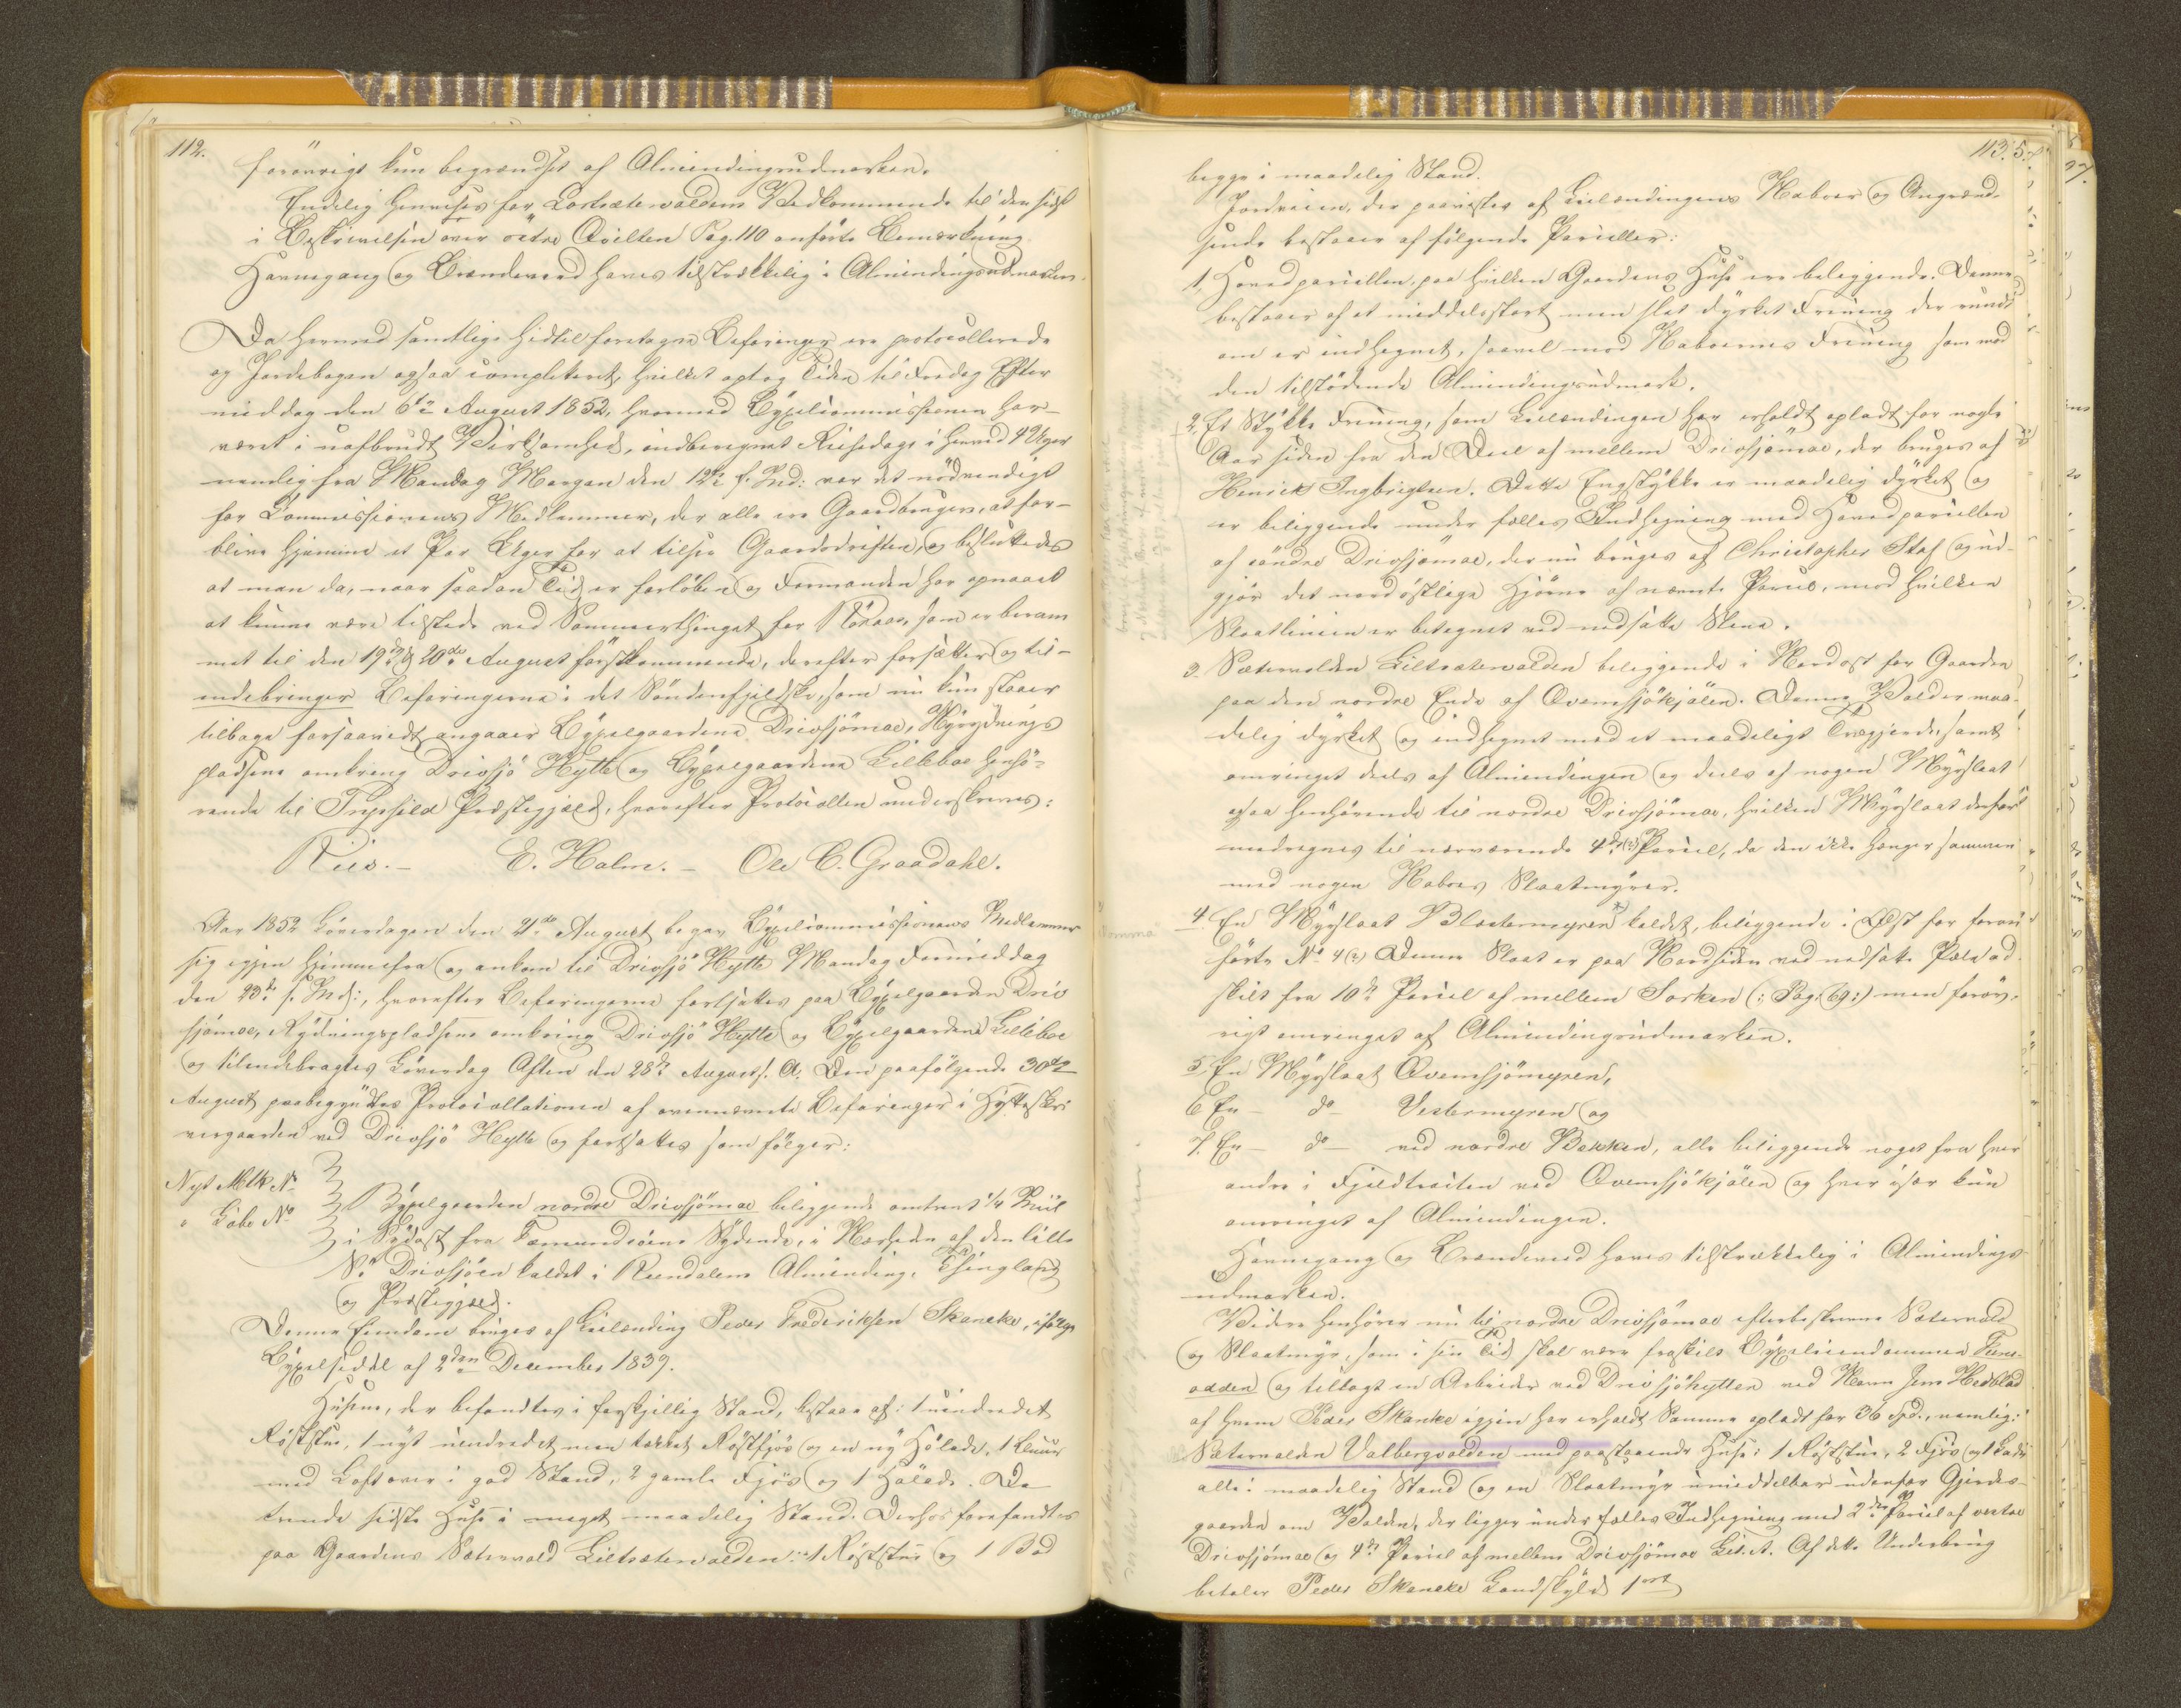 112.
forøvrigt kun begrændset af Almindingsudmarken.
Endelig henvises for Lorthsætervoldens Vedkommende til den sidst
i Beskrivelsen over østre Qvilten Pag. 110 anførte Bemærkning
Havnegang og Brændeved haves tilstrækkelig i Almindingsudmarken.
Da hermed samtlige hidtil foretagne Befaringer ere protocollerede
og Jordebogen ogsaa completeret, hvilket optog Tiden til Fredag Efter
middag den 6te August 1852, hvormed Bÿxelcommissionen har
været i uafbrudt Virksomhed, indberegnet Reisedage i henved 4 Uger
nemlig fra Mandag Morgen den 12te f. Md: var det nødvendigt
for Commissionens Medlemmer, der alle ere Gaardbrugere, at for-
blive hjemme et Par Uger for at tilsee Gaardsdriften, og besluttedes
at man da, naar saadan Tid er forløben og Formanden har opnaaet
at kunne være tilstede ved Sommerthinget for Röraas, som er beram
met til den 19de og 20de August førstkommende, derefter forsætter og til-
endebringer Befaringerne i det Söndenfjeldske, som nu kun staaer
tilbage forsaavidt angaaer Bÿxelgaardene Drevsjömoe, Rÿdnings
pladsene omkring Drevsjö Hytte og Bÿxelgaardene Lilleboe henhö-
rende til Trysild Præstegjæld, hvorefter Protocollen underskreves:
Ries. - E. Holm. - Ole C. Graadahl.
Aar 1852 Löverdagen den 21de August begav Bÿxelcommissionens Medlemmer
sig igjen hjemmefra og ankom til Drevsjö Hytte Mandag Formiddag
den 23de s. Md:, hvorefter Befaringerne fortsattes paa Bÿxelgaarden Drev
sjömoe, Rÿdningspladsene omkring Drevsjö Hytte og Bÿxelgaardene Lilleboe
og tilendebragtes Löverdag Aften den 28de August s. A. Den paafölgende 30te
August paabegÿndtes Protocollationen af ovennævnte Befaringer i Hÿtteskri
vergaarden ved Drevsjö Hytte og fortsattes som fölger:
Nyt Mtk No
" Løbe No
Bÿxelgaarden nordre Drevsjömoe beliggende omtrent 1/4 Miil
i Sÿdost fra Fæmundsöens Sÿdende, i Nærheden af den lille
Sö Drevsjöen kaldet i Rendalens Alminding, Thinglaug
og Præstegjæld.
Denne Eiendom bruges af Leilænding Peder Frederiksen Skancke, ifölge
Bÿxelseddel af 2den December 1839.
Husene, der befandtes i forskjellig Stand, bestaae af: 1 uindredet
Röststue, 1 nÿt uindredet men tækket Röstfjös og en nÿ Hölade, 1 Buur
med Loft over i god Stand, 2 gamle Fjös og 1 Hölade. De
trende sidste Huse i meget maadelig Stand. Derhos forefandtes
paa Gaardens Sætervold Liltsætervolden: 1 Röststue og 1 Bod
113.
begge i maadelig Stand.
Jordveien, der paavistes af Leilændingens Naboer og Angrænd-
sende bestaaer af fölgende Parceller:
1. Hovedparcellen, paa hvilken Gaardens Huse ere beliggende. Denne
bestaaer af et middelsstort men slet dÿrket Fræning der rundt
om er indhegnet, saavel mod Naboernes Fræning som mod
den tilstödende Almindingsudmark.
2. Et Stÿkke Fræning, som Leilændingen har erholdt opladt for nogle
Aar siden fra den Deel af mellem Drevsjömoe, der bruges af
Henrik Ingbrigtsen. Dette Engstÿkke er maadelig dÿrket og
er beliggende under fælles Indhegning med Hovedparcellen
af söndre Drevsjömoe, der nu bruges af Christopher Staf og ud-
gjör det nordöstlige Hjörne af nævnte Parcel, mod hvilken
Slaatlinien er betegnet ved nedsatte Stene.
3. Sætervolden Liltsætervolden beliggende i Nordost for Gaarden
paa den nordre Ende af Qvemsjökjölen. Denne Vold er maa-
delig dÿrket og indhegnet med et maadeligt Trægjerde, samt
omringet deels af Almindingen og deels af nogen Mÿrslaat
ogsaa henhörende til nordre Drevsjömoe, hvilken Mÿrslaat derfor
medregnes til nærværende 4de (3) Parcel, da den ikke hænger sammen
med nogen Naboes Slaatmÿrer.
4. En Mÿrslaat Blostermyren kaldet, beliggende i Öst for foran
förte No 4 (3) Denne Slaat er paa Nordsiden ved nedsatte Pæle ad
skilt fra 10de Parcel af mellem Sorken (: Pag: 69:) men foröv-
rigt omringet af Almindingsudmarken.
5. En Mÿrslaat Qvemsjömyren,
6. En - do - Vestermyren og
7. En - do - ved nordre Bekken, alle beliggende noget fra hver
andre i Fjeldtrakten ved Qvemsjökjölen og hver især kun
omringet af Almindingen.
Havnegang og Brændeved haves tilstrækkelig i Almindings-
udmarken.
Videre henhörer nu til nordre Drevsjömoe efterbeskrevne Sætervold
og Slaatmÿr, som i sin Tid skal være fraskilt Bÿxeleiendommen Fure-
odden og tillagt en Arbeider ved Drevsjöhytten ved Navn Jens Hedblad
af hvem Peder Skancke igjen har erholdt Samme opladt for 36 Spd., nemlig:
Sætervolden Valbergvolden med paastaaende Huse: 1 Röststue, 2 Fjös og 1 Lade
alle i maadelig Stand og en Slaatmÿr umiddelbar udenfor Gjerdes-
gaarden om Volden, der ligger under fælles Indhegning med 2den Parcel af vestre
Drevsjömoe og 4de Parcel af mellem Drevsjömoe Lit. A. Af dette Underbrug
betaler Peder Skancke Landskÿld 1 ort